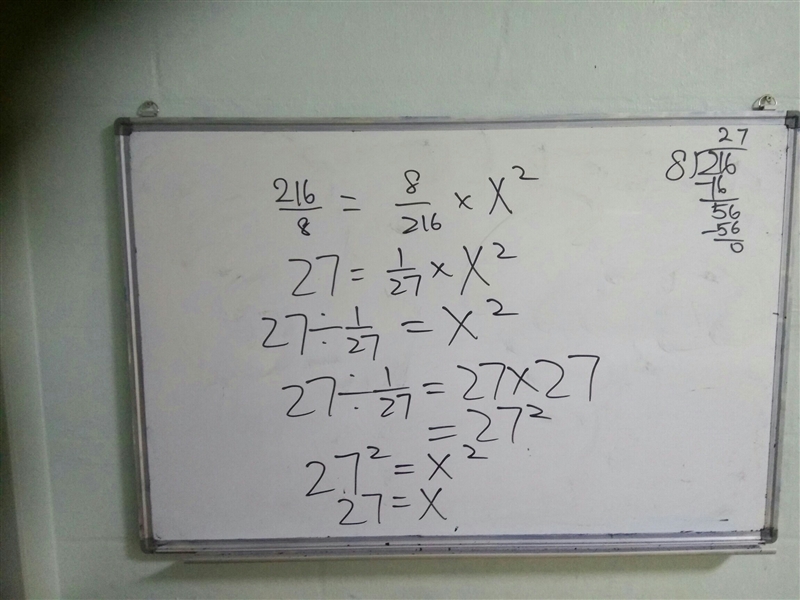 216/8 = 8/216 × X²
27 = 1/27 × X²
27 ÷ 1/27 = X²
27 ÷ 1/27 = 27×27
= 27²
27² = X²
27 = X
27
8)216
-16
56
-56
0